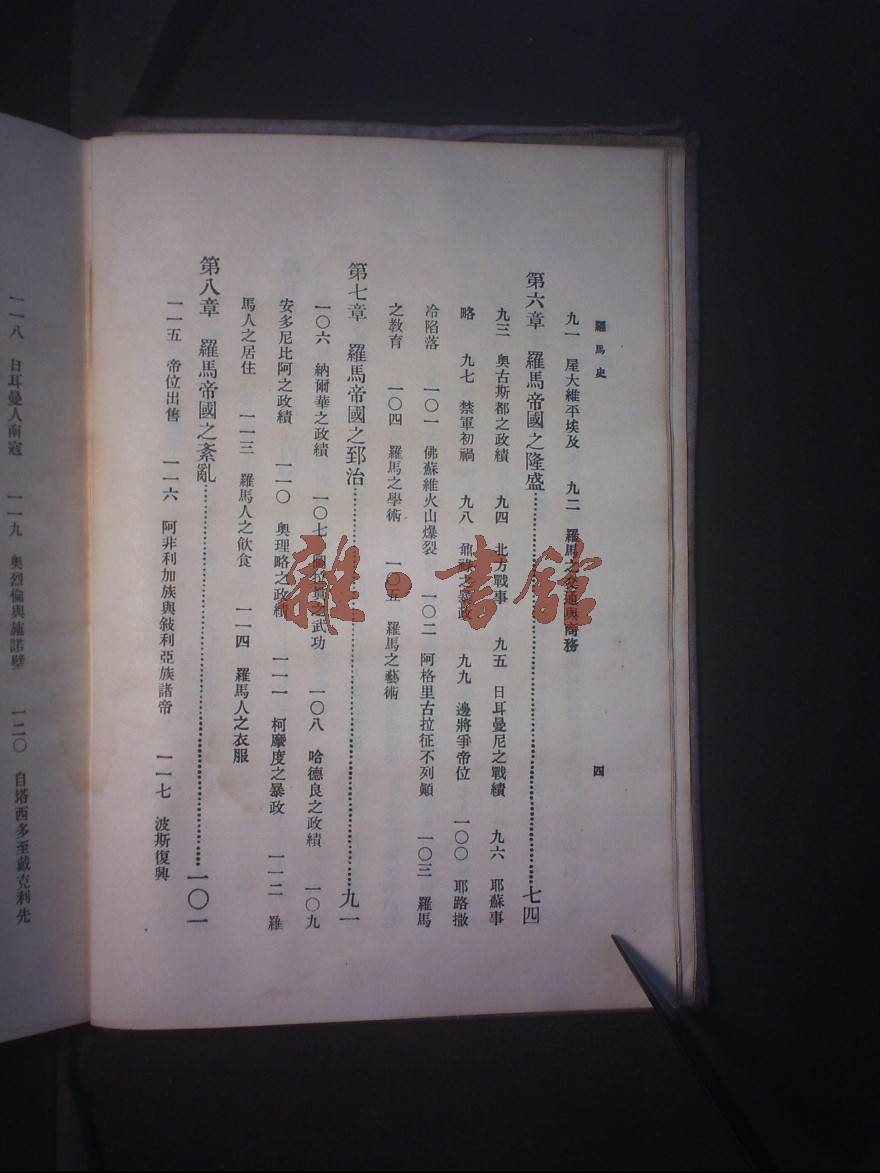 羅馬史
四
九一 屋大維平埃及 九二 羅馬之交通與商務
第六章 羅馬帝國之隆盛 七四
九三 奧古斯都之政績 九四 北方戰事 九五 日耳曼尼之戰績 九六 耶蘇事
略 九七 禁軍初禍 九八 之暴政 九九 邊將爭帝位 一〇〇 耶路撒
冷陷落 一〇一 佛蘇維火山爆裂 一〇二 阿格里古拉征不列顚 一〇三 羅馬
之教育 一〇四 羅馬之學術 一〇五 羅馬之藝術
第七章 羅馬帝國之郅治 九一
一〇六 納爾華之政績 一〇七 圖拉真之武功 一〇八 哈德良之政績 一〇九
安多尼比阿之政績 一一〇 奧理略之政績 一一一 柯摩度之暴政 一一二 羅
馬人之居住 一一三 羅馬人之飲食 一一四 羅馬人之衣服
第八章 羅馬帝國之紊亂 一〇一
一一五 帝位出售 一一六 阿非利加族與敍利亞族諸帝 一一七 波斯復興
一一八 日耳曼人南寇 一一九 奧烈倫與施諾璧 一二〇 自塔西多至戴克利先
雜·書館